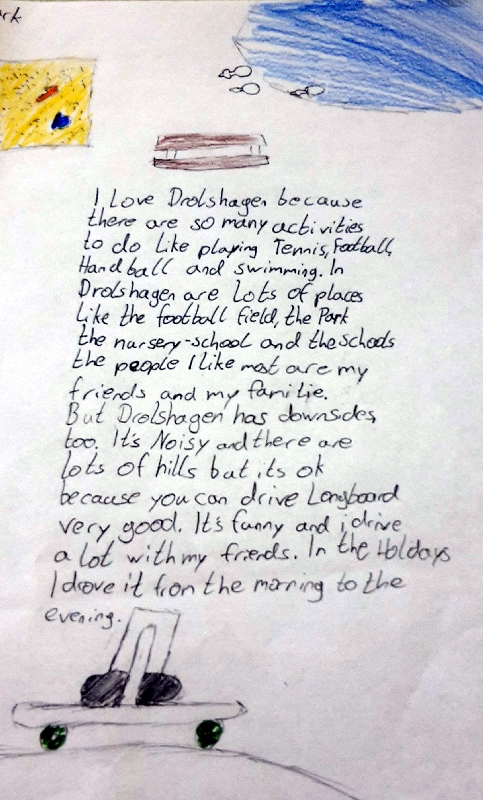 I Love Drolshagen because
there are so many activities
to do like playing Tennis, Football,
Handball and swimming. In
Drolshagen are Lots of places
Like the football field, the Park
the nursery-school and the schools
the people I like most are my
friends and my familie.
But Drolshagen has downsides,
too. It's Noisy and there are
lots of hills but its ok
because you can drive Longboard
very good. It's funny and i drive
a lot with my friends. In the Holidays
I drove it from the morning to the
evening.